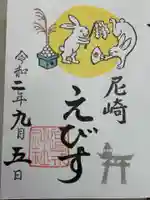 尼崎
えびす
令和二年九月五日